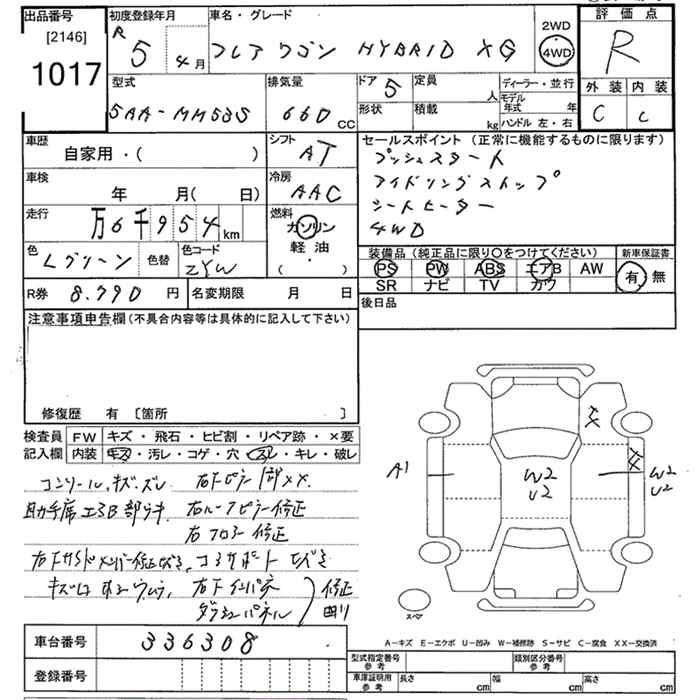 出品番号 初度登録年月 車名・グレード 評価点
[2146]
1017
R 5 年 4月 フレアワゴン HYBRID XG 2WD 4WD R
外装 内装
C C
型式 排気量 ドア 5 定員 人 ディーラー・並行
5AA-MM53S 660 CC 形状 積載 kg モデル年式 年
ハンドル 左・右
車歴 シフト セールスポイント (正常に機能するものに限ります)
自家用・( ) AT プッシュスタート
車検 冷房 アイドリングストップ
年 月( 日) AAC シートヒーター
走行 燃料 4WD
万6千954km ガソリン
軽油
( ・ )
色 色替 色コード 装備品 (純品に限り○をつけてください) 新車保証書
Lグリーン ZYW PS PW ABS エアB AW 有 無
SR ナビ TV カワ
R券 8.790 円 名変期限 月 日 後日品
注意事項申告欄 (不具合内容等は具体的に記入して下さい)
修復歴 有 [箇所 ]
検査員 FW キズ・飛石・ヒビ割・リペア跡・×要
記入欄 内装 キズ・汚レ・コゲ・穴・スレ・キレ・破レ
コンソール、キズ、ズレ
助手席エアB部
右ルーフピラー修正
右フロアー修正
修正
A1
W2
U2
W2
U2
XX
XX
スペア
A-キズ E-エクボ U-凹み W-補修跡 S-サビ C-腐食 XX-交換済
車台番号 336308
登録番号
型式指定番号 参考 類別区分番号 参考
車庫証明用 参考 長さ cm 幅 cm 高さ cm